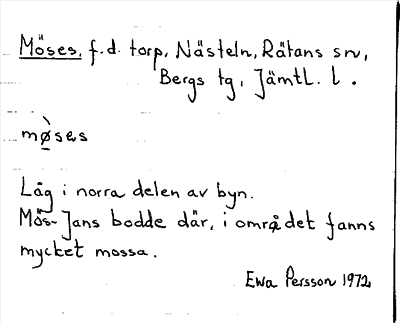 Möses, f.d. torp, Nästeln, Rätans sn,
Bergs tg, Jämtl. l.
mø̀sɛs
Låg i norra delen av byn.
Mös-Jans bodde där, i området fanns
mycket mossa.
Ewa Persson 1972